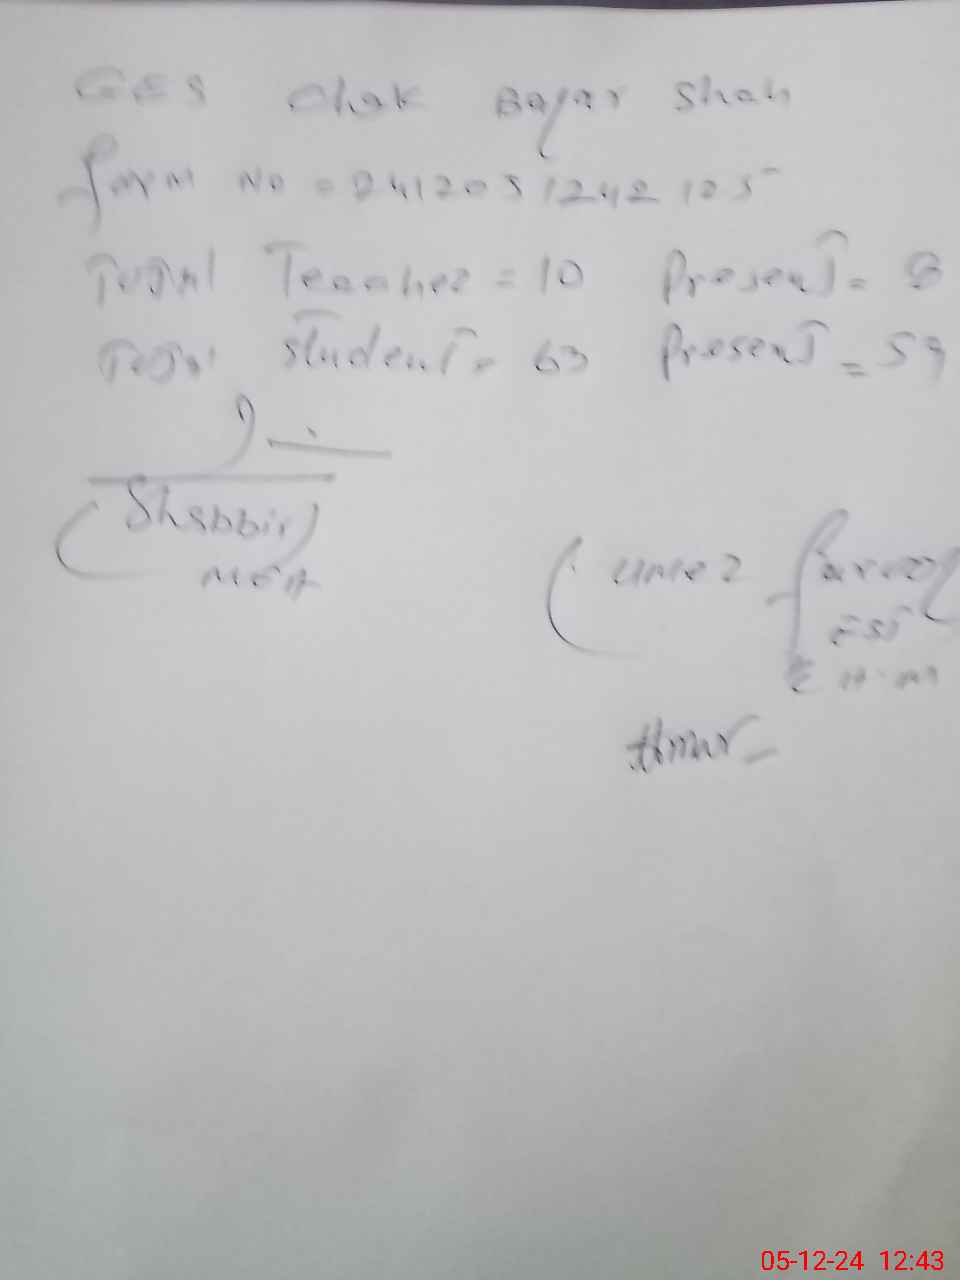 GES Chak Baqar Shah
Form No = 2412051242105
Total Teacher = 10 Present = 8
Total Student = 63 Present = 59
(Shabbir)
MEA
(Umer Farooq)
EST
H.M
05-12-24 12:43